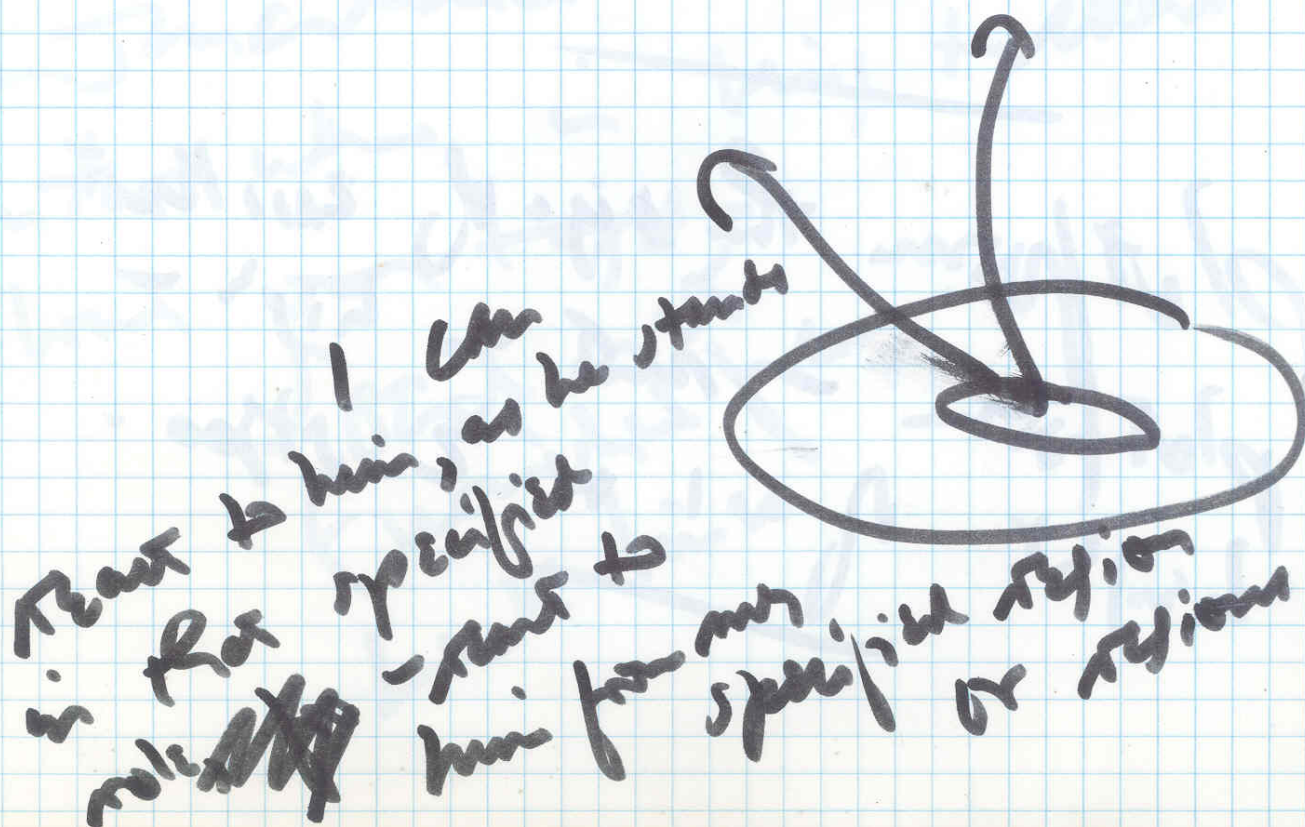 I can
react to him, as he stands
in that specified
role - react to
him from my
specified region
or regions